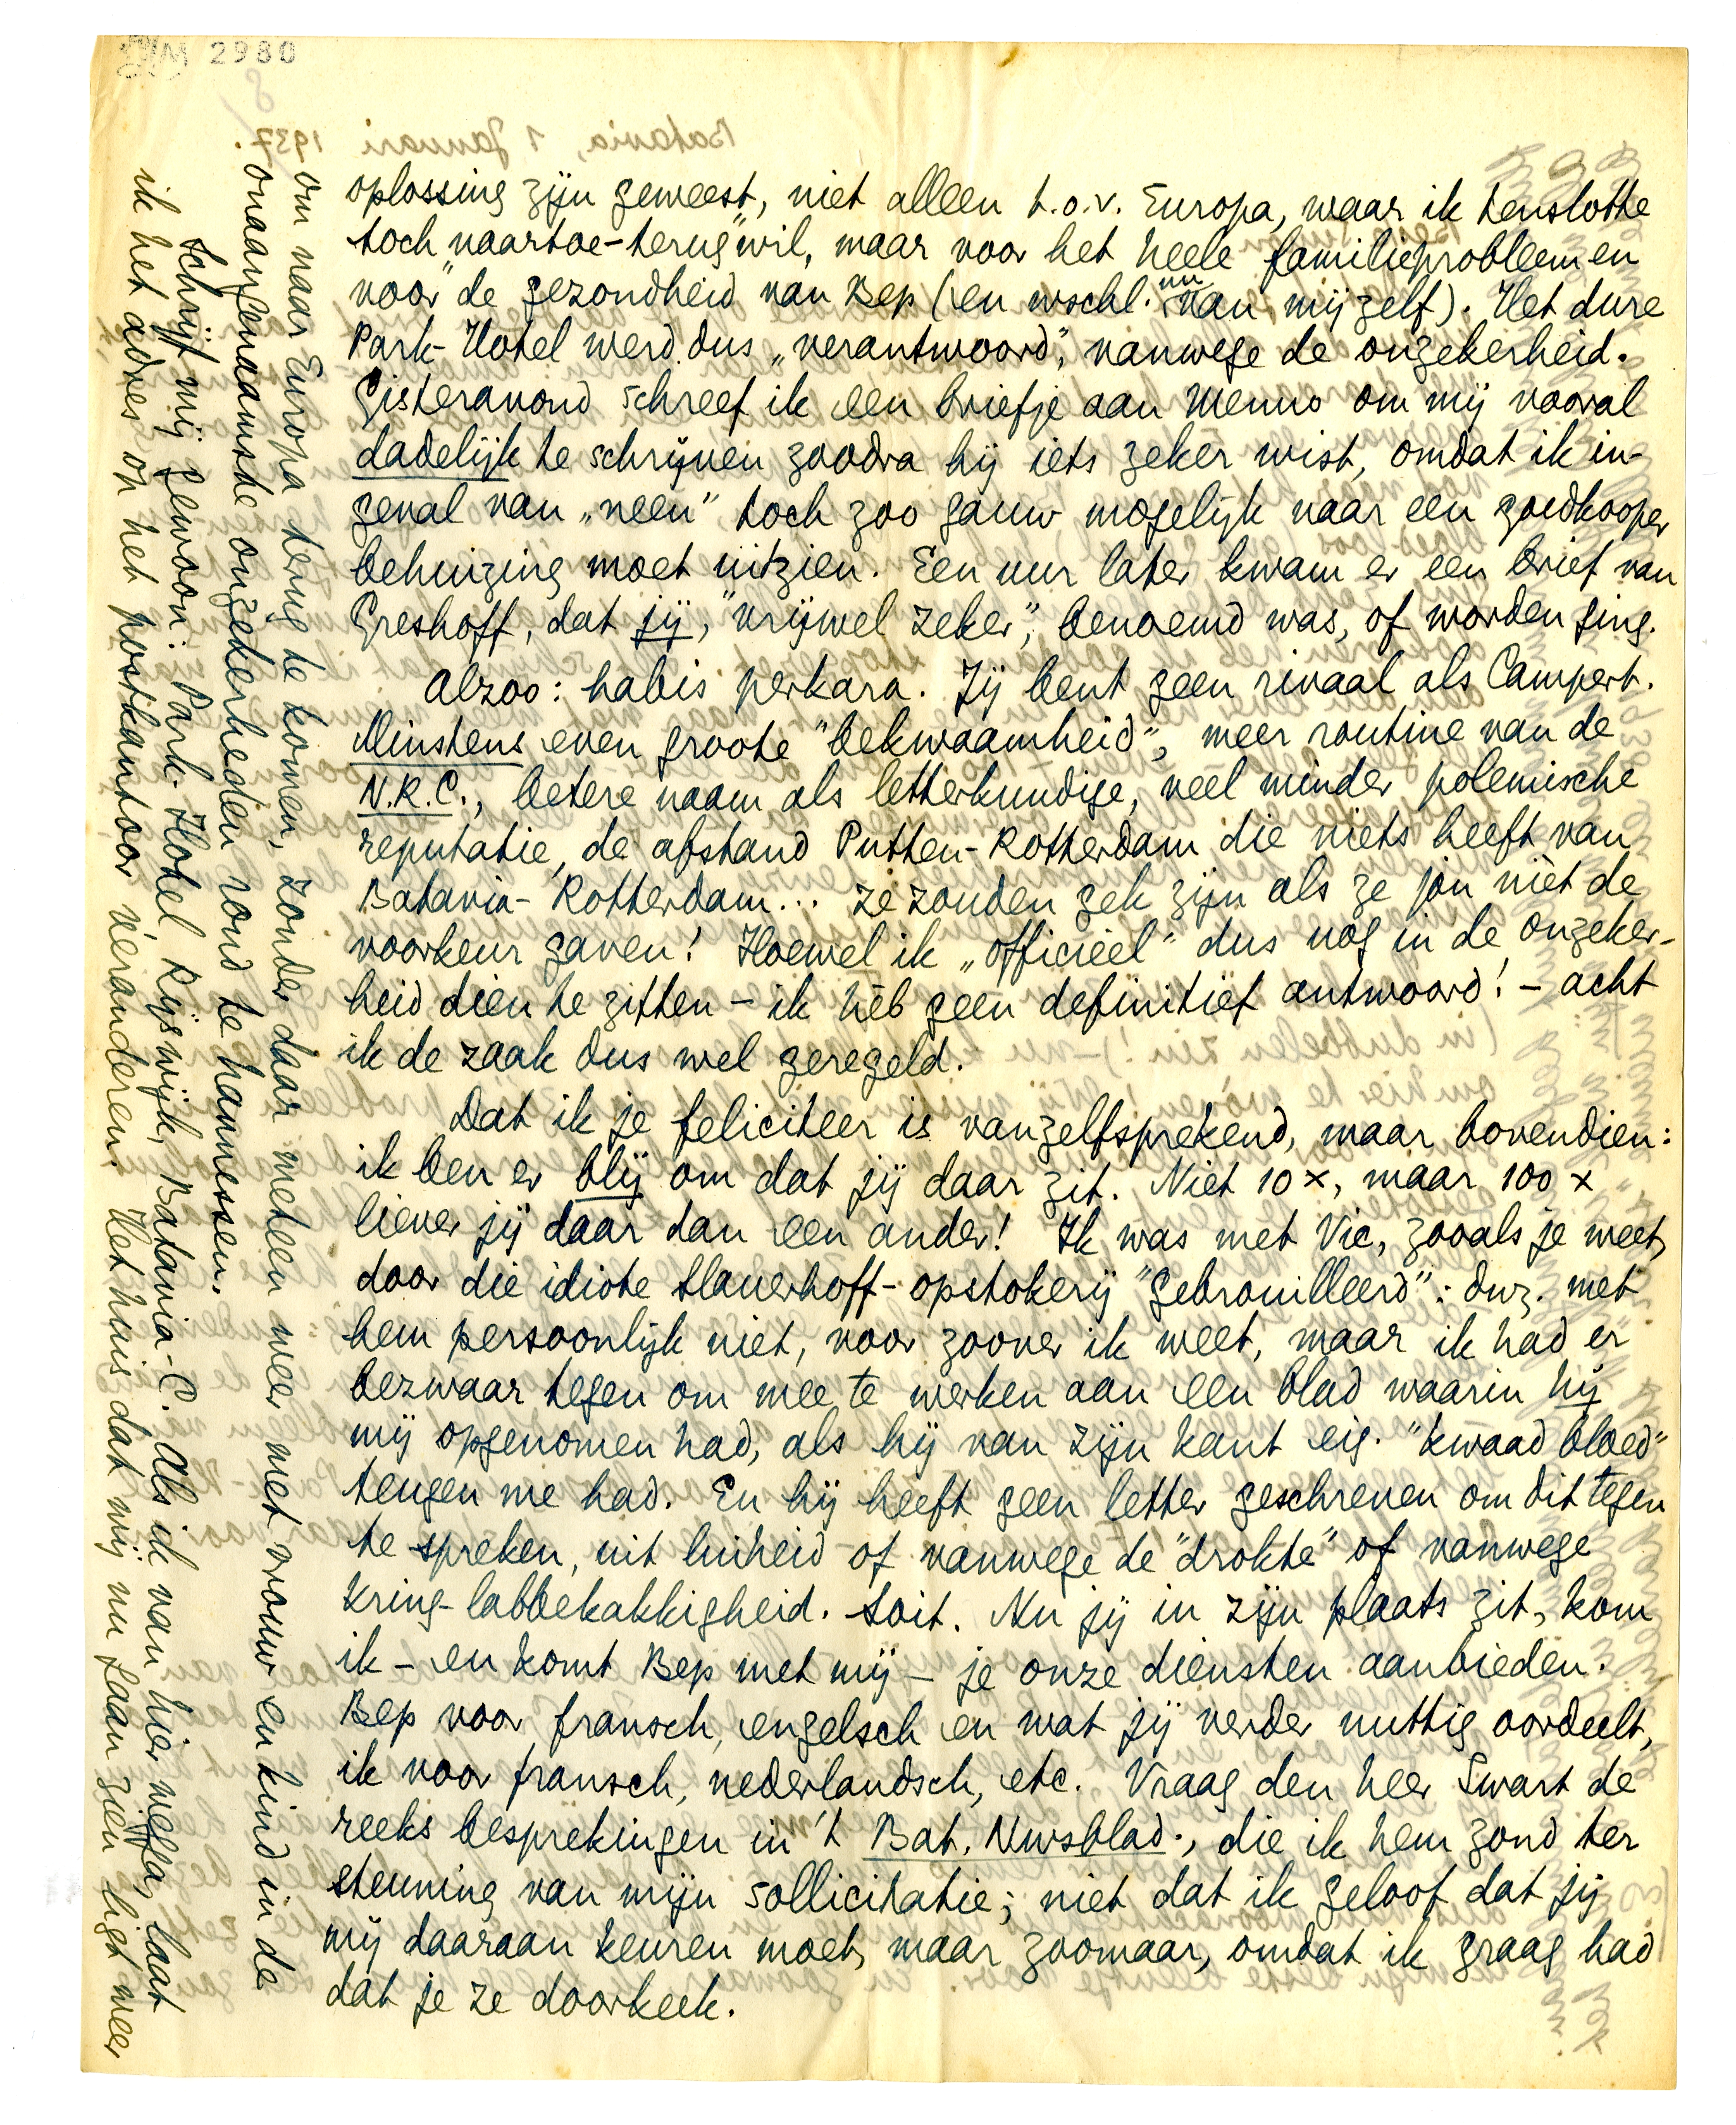 2980
oplossing zijn geweest, niet alleen t.o.v. Europa, waar ik tenslotte
toch "naartoe-terug" wil, maar voor het heele familieprobleem en
voor de gezondheid van Bep (en wschl. nu van mijzelf). Het dure
Park-Hotel werd dus „verantwoord", vanwege de onzekerheid.
Gisteravond schreef ik een briefje aan Menno om mij vooral
dadelijk te schrijven zoodra hij iets zeker wist, omdat ik in-
geval van „neen" toch zoo gauw mogelijk naar een goedkooper
behuizing moet uitzien. Een uur later kwam er een brief van
Greshoff, dat jij, "vrijwel zeker", benoemd was, of worden ging.
Alzoo: habis perkara. Jij bent geen rivaal als Campert.
Minstens even groote "bekwaamheid", meer routine van de
N.R.C., betere naam als letterkundige, veel minder polemische
reputatie, de afstand Putten-Rotterdam die niets heeft van
Batavia-Rotterdam... ze zouden gek zijn als ze jou niet de
voorkeur gaven! Hoewel ik „officiëel" dus nog in de onzeker-
heid dien te zitten – ik hèb geen definitief antwoord! – acht
ik de zaak dus wel geregeld.
Dat ik je feliciteer is vanzelfsprekend, maar bovendien:
ik ben er blij om dat jij daar zit. Niet 10 x, maar 100 x
liever jij daar dan een ander! Ik was met Vic, zooals je weet,
door die idiote Slauerhoff-opstokerij "gebrouilleerd": dwz. met
hem persoonlijk niet, voor zoover ik weet, maar ik had er
bezwaar tegen om mee te werken aan een blad waarin hij
mij opgenomen had, als hij van zijn kant eig. "kwaad bloed"
teugen me had. En hij heeft geen letter geschreven om dit tegen
te spreken, uit luiheid of vanwege de "drokte" of vanwege
kring-labbekakkigheid. Soit. Nu jij in zijn plaats zit, kom
ik – en komt Bep met mij – je onze diensten aanbieden.
Bep voor fransch, engelsch en wat jij verder nuttig oordeelt,
ik voor fransch, nederlandsch, etc. Vraag den heer Swart de
reeks besprekingen in 't Bat. Nwsblad., die ik hem zond ter
steuning van mijn sollicitatie; niet dat ik geloof dat jij
mij daaraan keuren moet, maar zoomaar, omdat ik graag had
dat je ze doorkeek.
om naar Europa terug te komen, zonder daar meteen weer met vrouw en kind in de
onaangenaamste onzekerheden rond te hannessen.
Schrijf mij gewoon: Park-Hotel, Rijswijk, Batavia-C. Als ik van hier wegga, laat
ik het adres op het postkantoor veranderen. Het huis dat wij nu gaan zien ligt weer